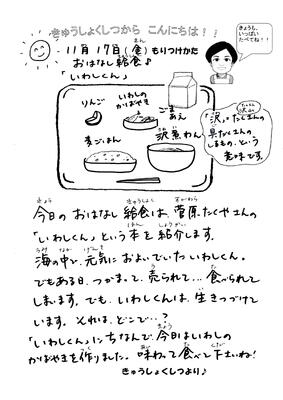 きゅうしょくしつから こんにちは!!
きょうも、
いっぱい
たべてね!!
11月17日(金)もりつけかた
おはなし給食♪
「いわしくん」
りんご
いわしの
かばやき
ごま
あえ
麦ごはん
沢煮わん
「沢」=たくさんの
具だくさんの
しるもの、という
意味です。
今日のおはなし給食は、菅原たくやさんの
「いわしくん」という本を紹介します。
海の中で、元気におよいでいたいわしくん。
でもある日、つかまって、売られて...食べられて
しまいます。でも、いわしくんは、生きつづけて
います。それは、どこで…?
「いわしくん」にちなんで、今日はいわしの
かばやきを作りました。味わって食べて下さいね!
きゅうしょくしつより♪